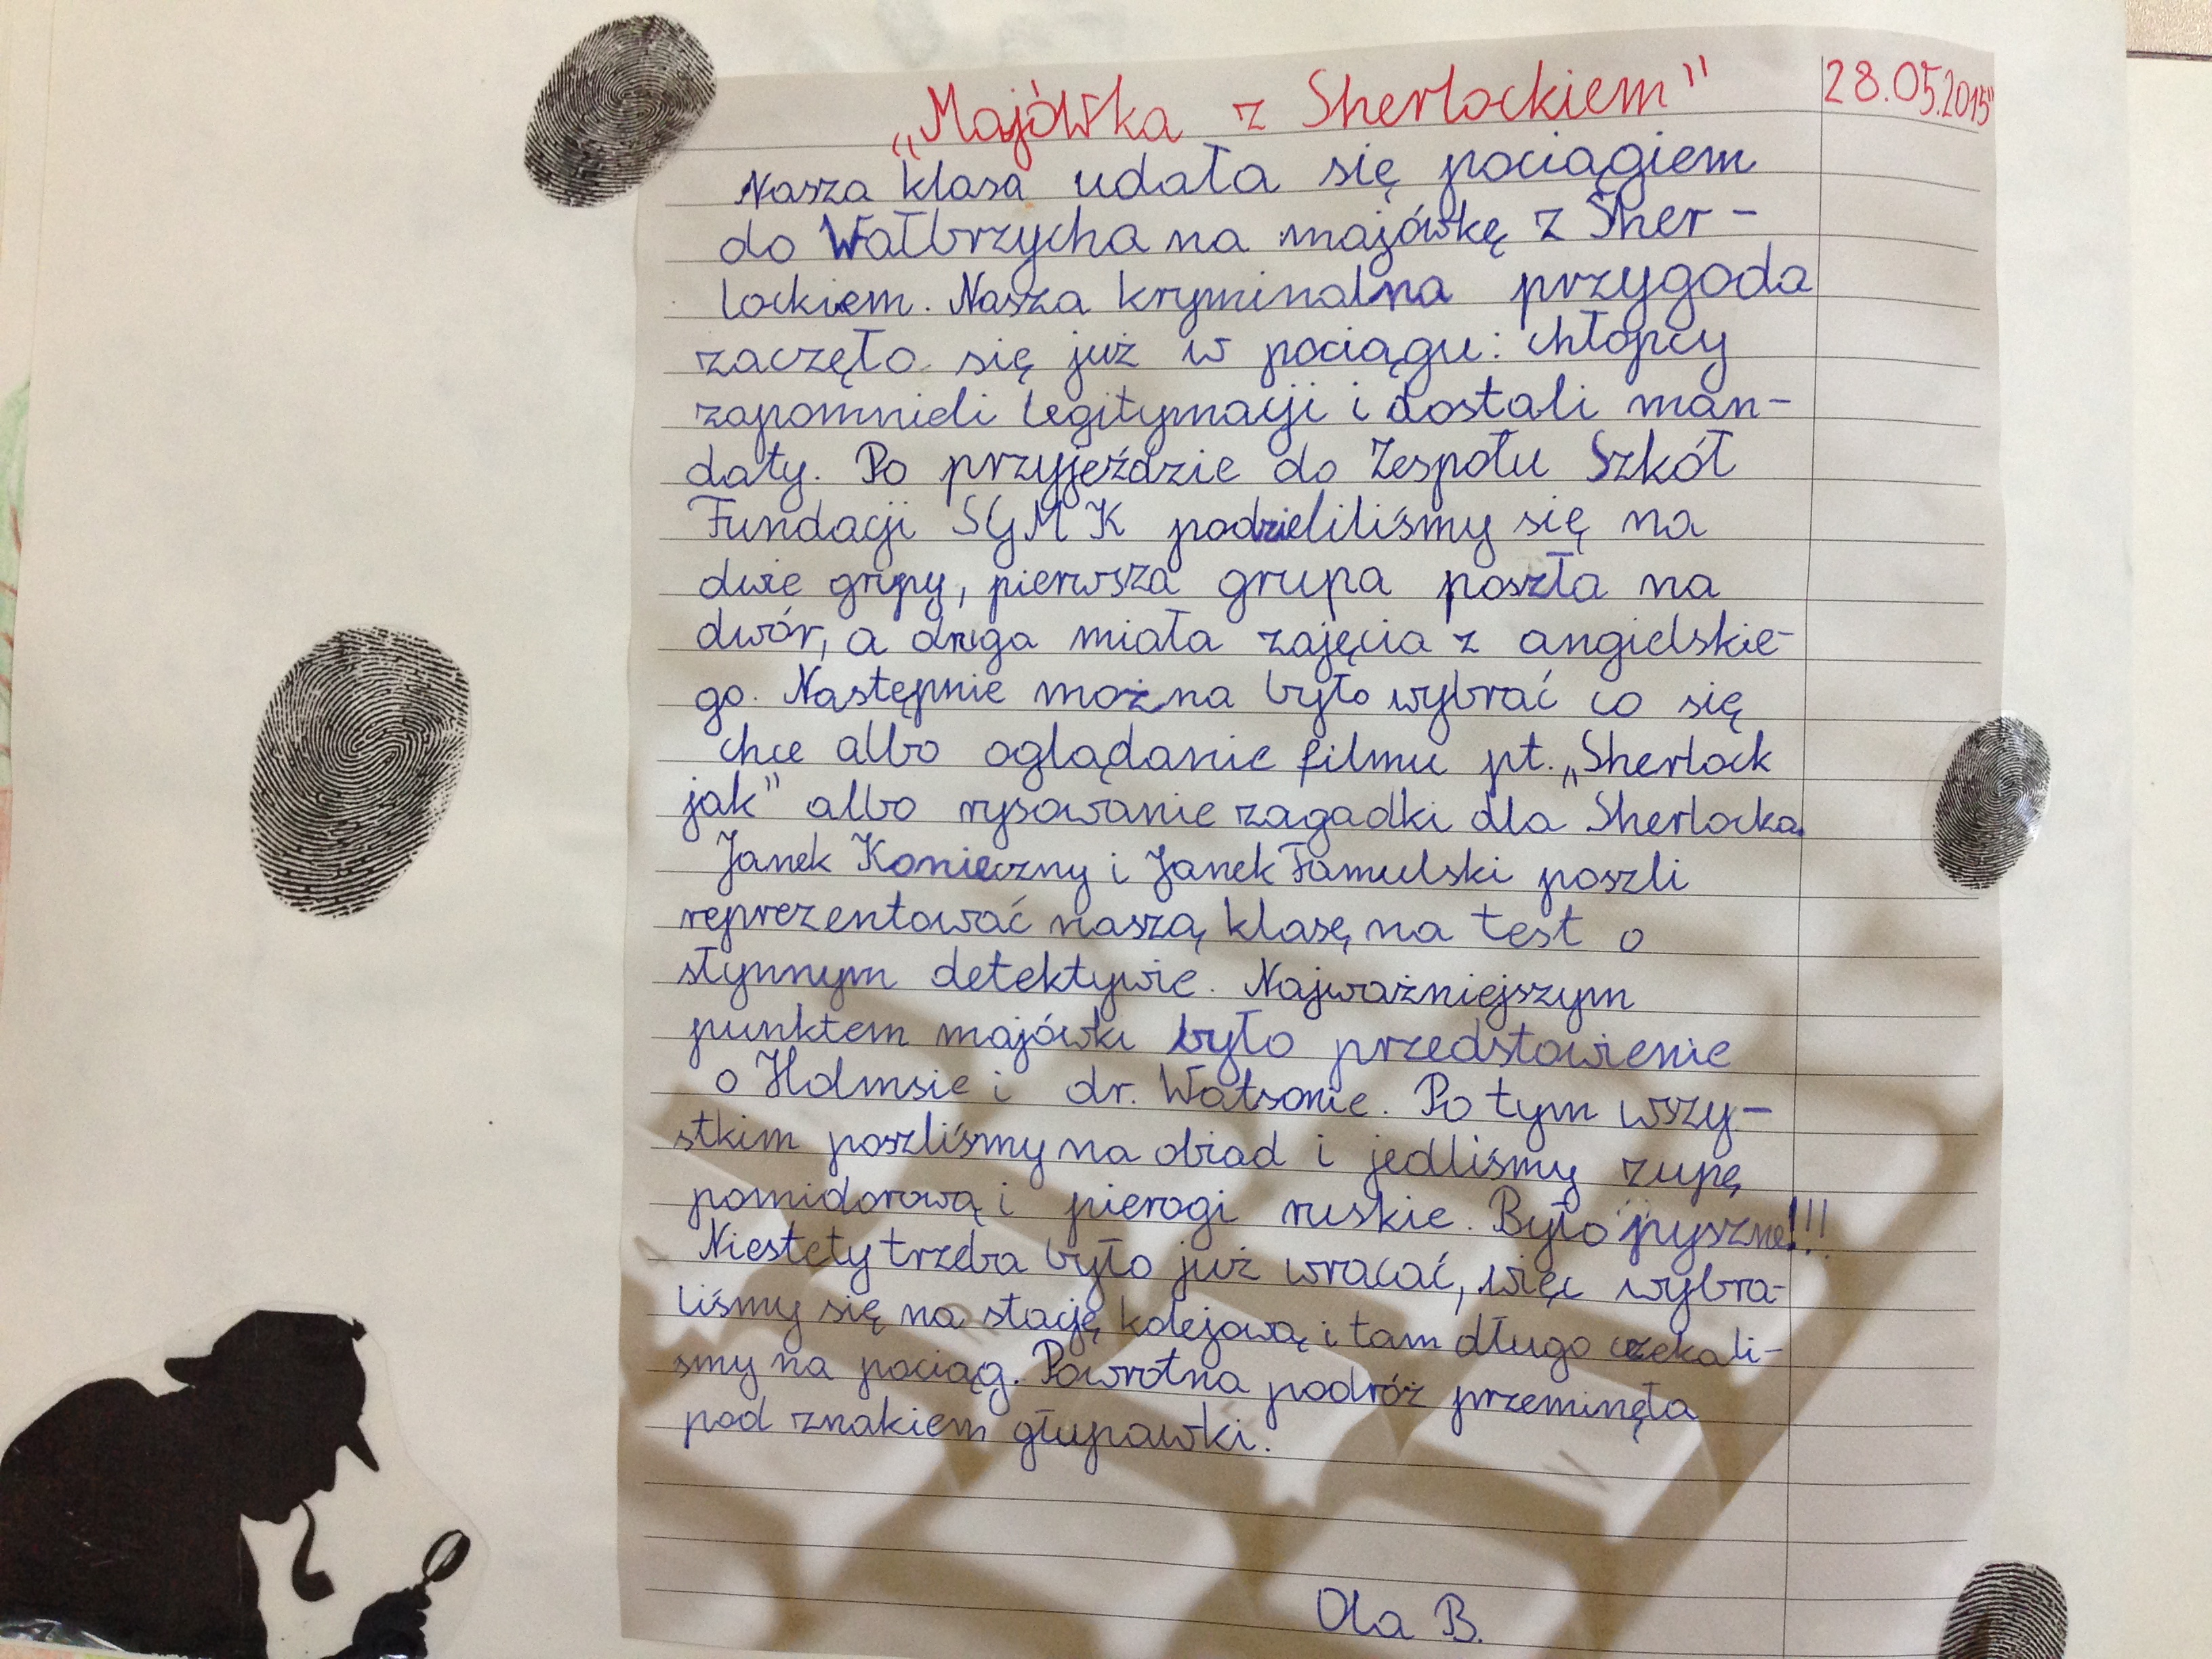 „Majówka z Sherlockiem” 28.05.2015"
Nasza klasa udała się pociągiem
do Wałbrzycha na majówkę z Sher-
lockiem. Nasza kryminalna przygoda
zaczęło się już w pociągu: chłopcy
zapomnieli legitymacji i dostali man-
daty. Po przyjeździe do Zespołu Szkół
Fundacji SGMK podzieliliśmy się na
dwie grupy, pierwsza grupa poszła na
dwór, a druga miała zajęcia z angielskie-
go. Następnie można było wybrać co się
chce albo oglądanie filmu pt. „Sherlock
jak” albo rysowanie zagadki dla Sherlocka.
Janek Konieczny i Janek Famulski poszli
reprezentować naszą klasę na test o
słynnym detektywie. Najważniejszym
punktem majówki było przedstawienie
o Holmsie i dr. Watsonie. Po tym wszy-
stkim poszliśmy na obiad i jedliśmy zupę
pomidorową i pierogi ruskie. Było pyszne!!!
Niestety trzeba było już wracać, więc wybra-
liśmy się na stację kolejową i tam długo czekali-
śmy na pociąg. Powrotna podróż przeminęła
pod znakiem głupawki.
Ola B.